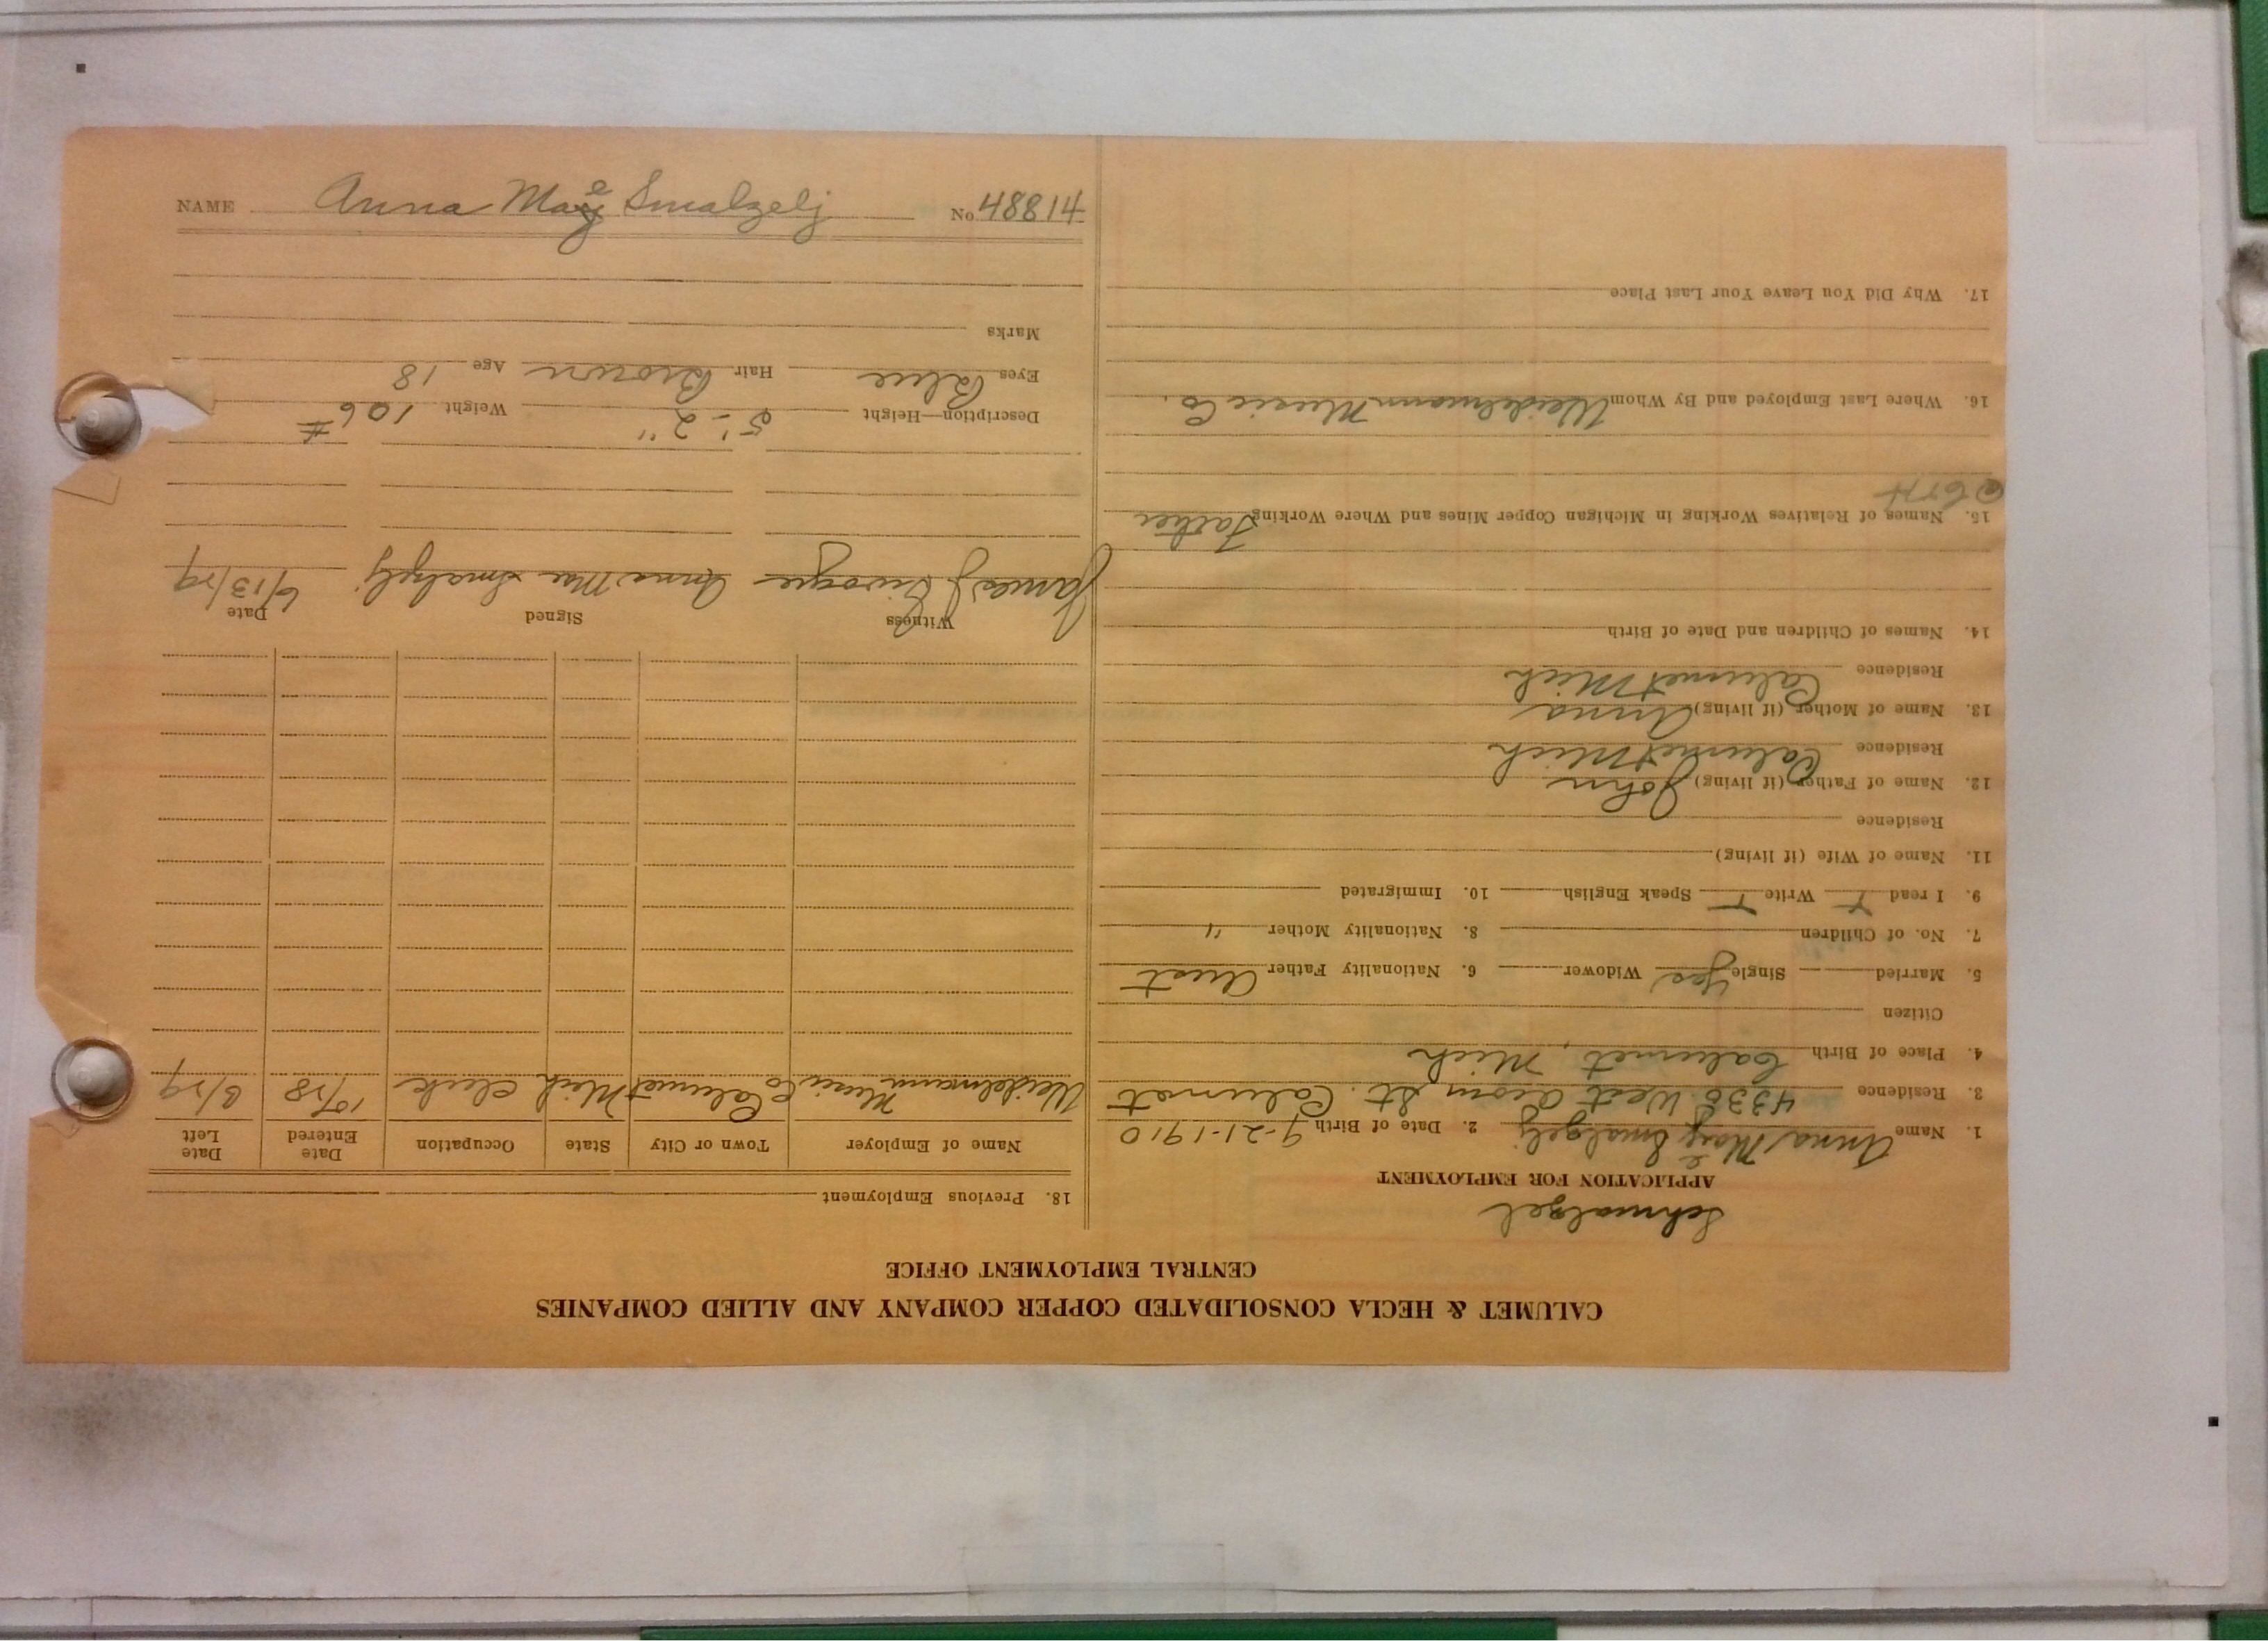 NAME Anna Mae Smalzelj No 48814
CALUMET & HECLA CONSOLIDATED COPPER COMPANY AND ALLIED COMPANIES
CENTRAL EMPLOYMENT OFFICE
Schmalzel
APPLICATION FOR EMPLOYMENT
1. Name Anna Mae Smalzelj 2. Date of Birth 9-21-1910
3. Residence 4338 West Acorn St. Calumet
4. Place of Birth Calumet, Mich
Citizen
5. Married Single Yes Widower 6. Nationality Father Aust
7. No. of Children 8. Nationality Mother "
9. I read Y Write Y Speak English 10. Immigrated
11. Name of Wife (if living)
Residence
12. Name of Father (if living) John
Residence Calumet Mich
13. Name of Mother (if living) Anna
Residence Calumet Mich
14. Names of Children and Date of Birth
15. Names of Relatives Working in Michigan Copper Mines and Where Working Father
16. Where Last Employed and By Whom Weidelmann Music Co.
17. Why Did You Leave Your Last Place
18. Previous Employment
Name of Employer Town or City State Occupation Date Entered Date Left
Weidelmann Music Co Calumet Mich Clerk 10/28 6/29
Witness Signed Date
James J Anna Mae Smalzelj 6/13/29
Description—Height 5'-2" Weight 106#
Eyes Blue Hair Brown Age 18
Marks